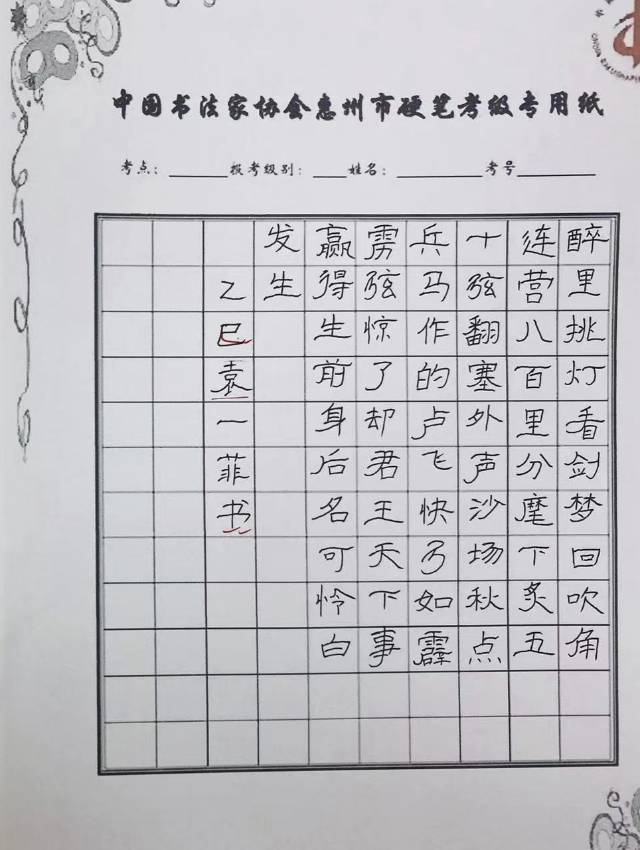 中国书法家协会惠州市硬笔考级专用纸
考点：______ 报考级别：____ 姓名：________ 考号________
醉里挑灯看剑梦回吹角
连营八百里分麾下炙五
十弦翻塞外声沙场秋点
兵马作的卢飞快弓如霹
雳弦惊了却君王天下事
赢得生前身后名可怜白
发生
乙巳袁一菲书